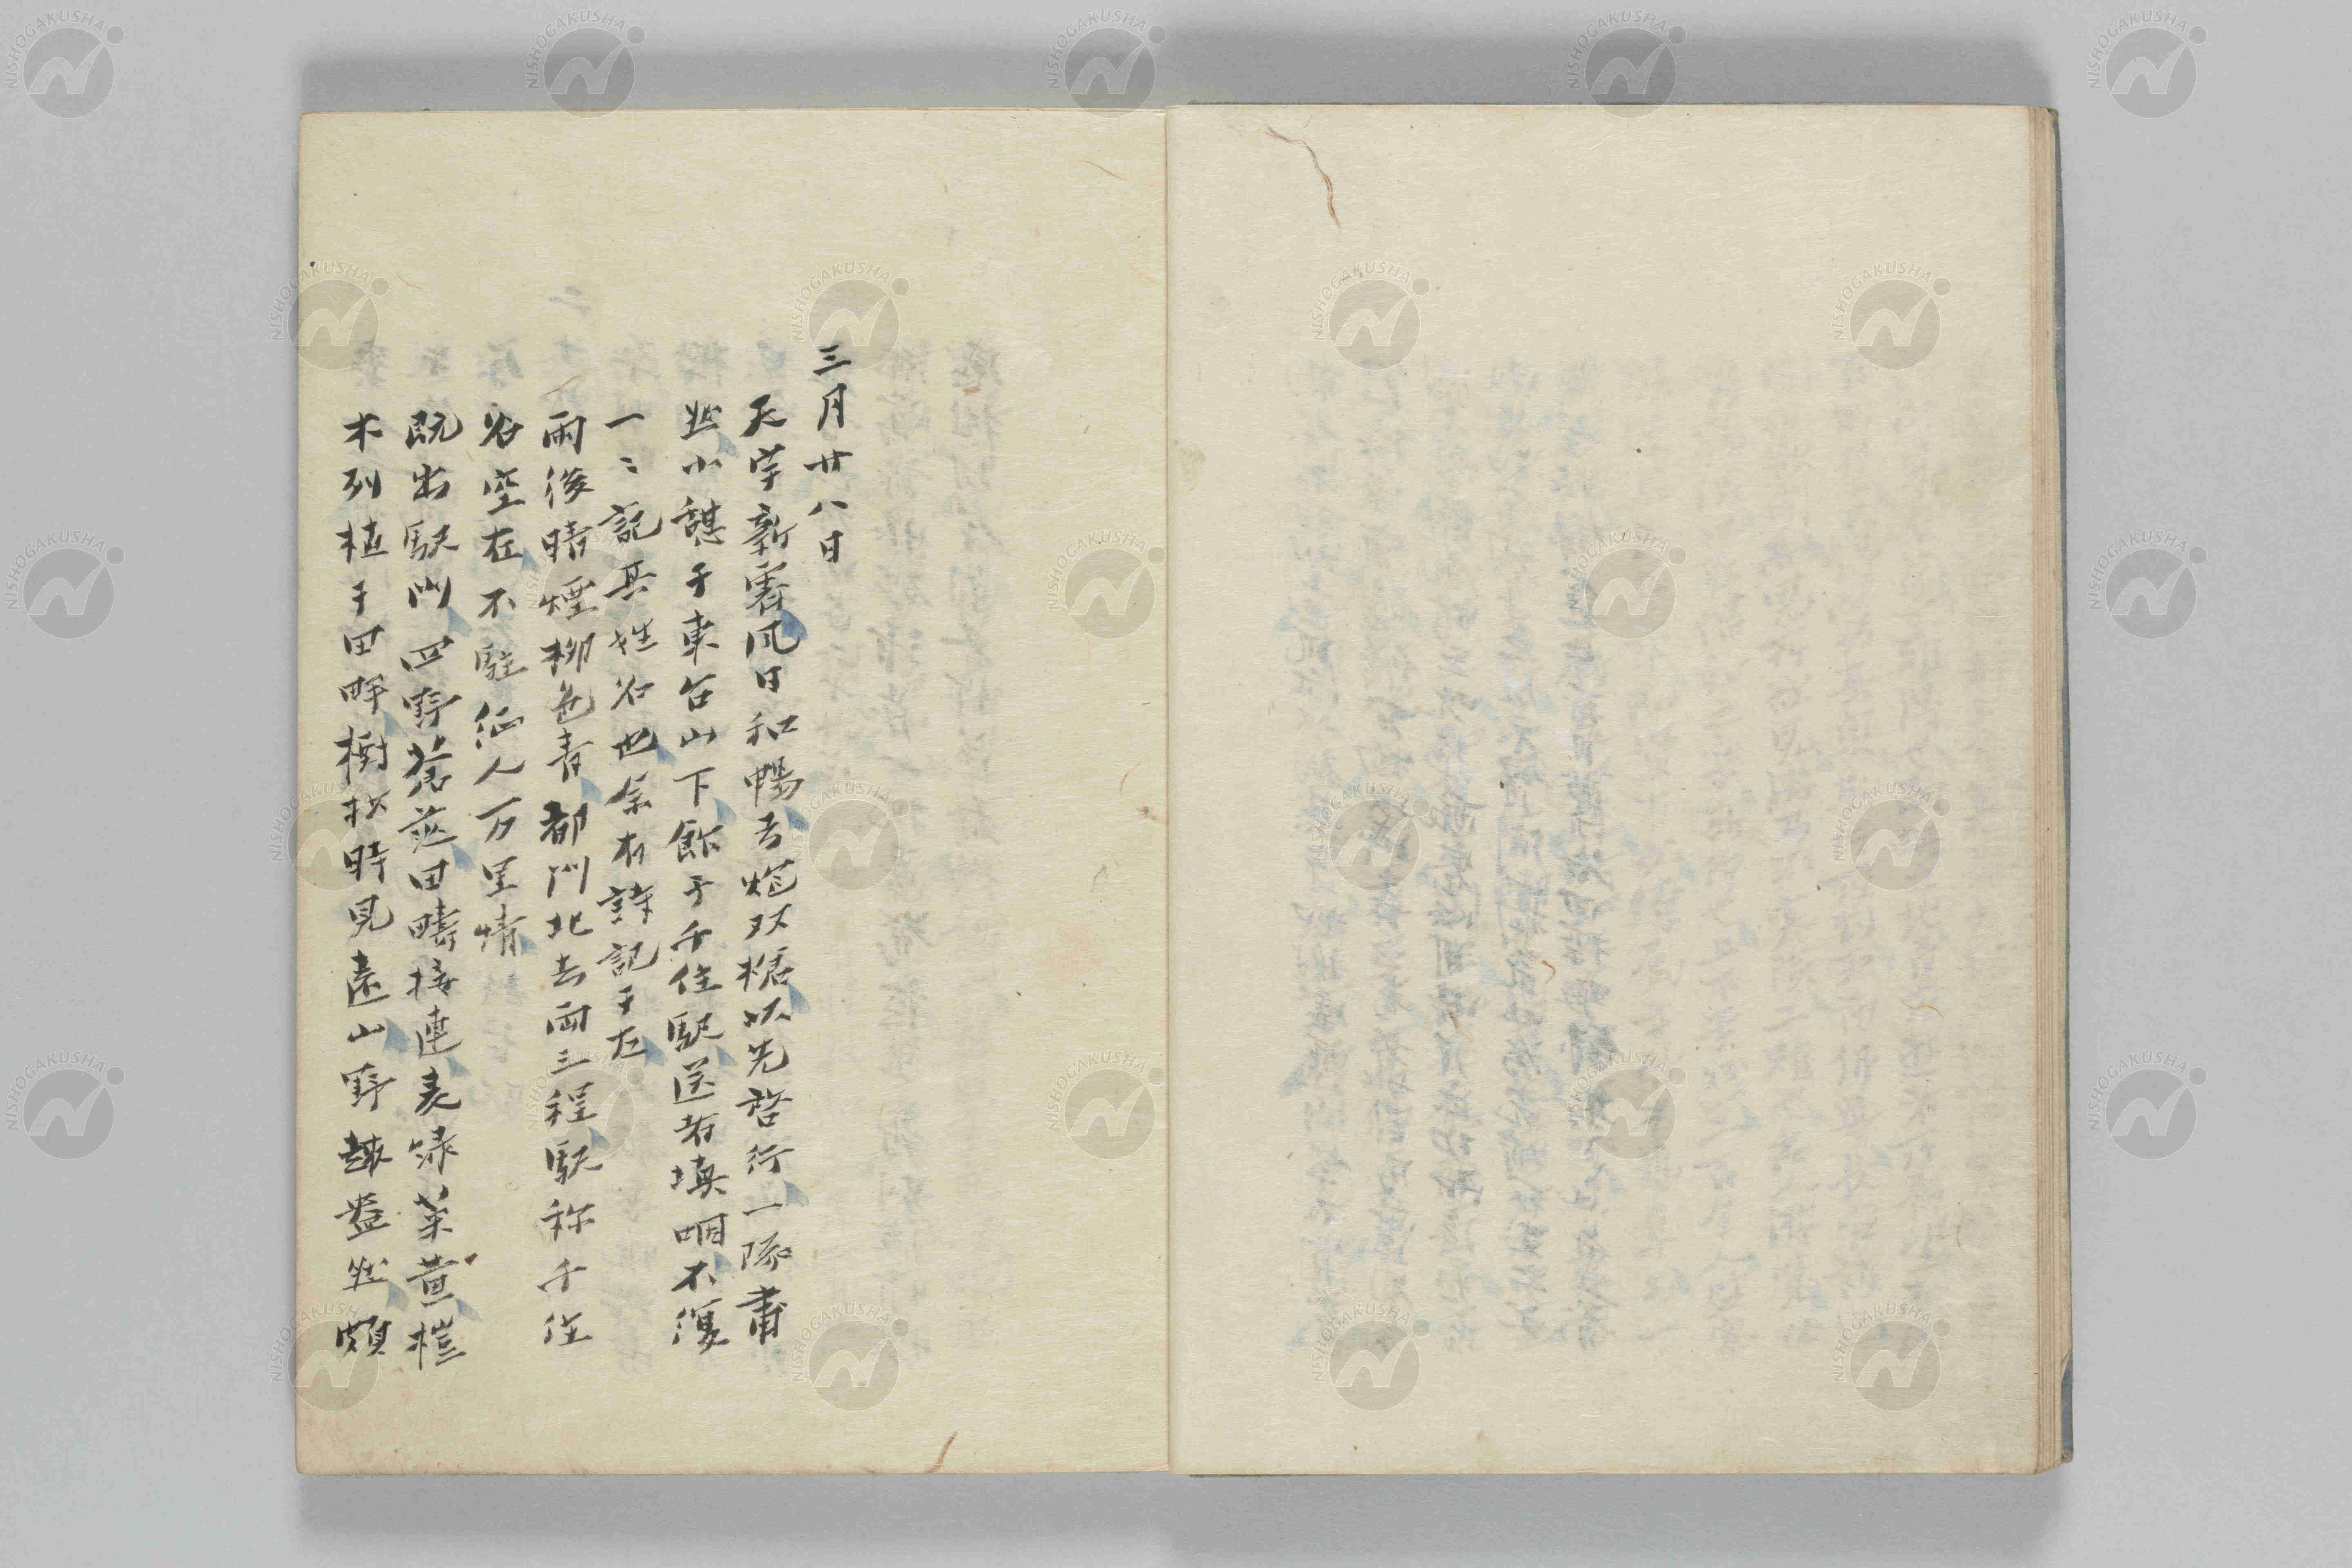 三月廿八日
天宇新霽風日和暢去炮双櫓以先啓行一隊肅
然小憩于東台山下餞于千住駅送者填咽不復
一〻記其姓名也余有詩記于左
雨後晴煙柳色青都門北去両三程駅称千住
名空在不駐征人万里情
既出駅門四野蒼茫田疇接連麦緑菜黄榿
木列植于田畔樹杪時見遠山野趣盎然頗
NISHOGAKUSHA